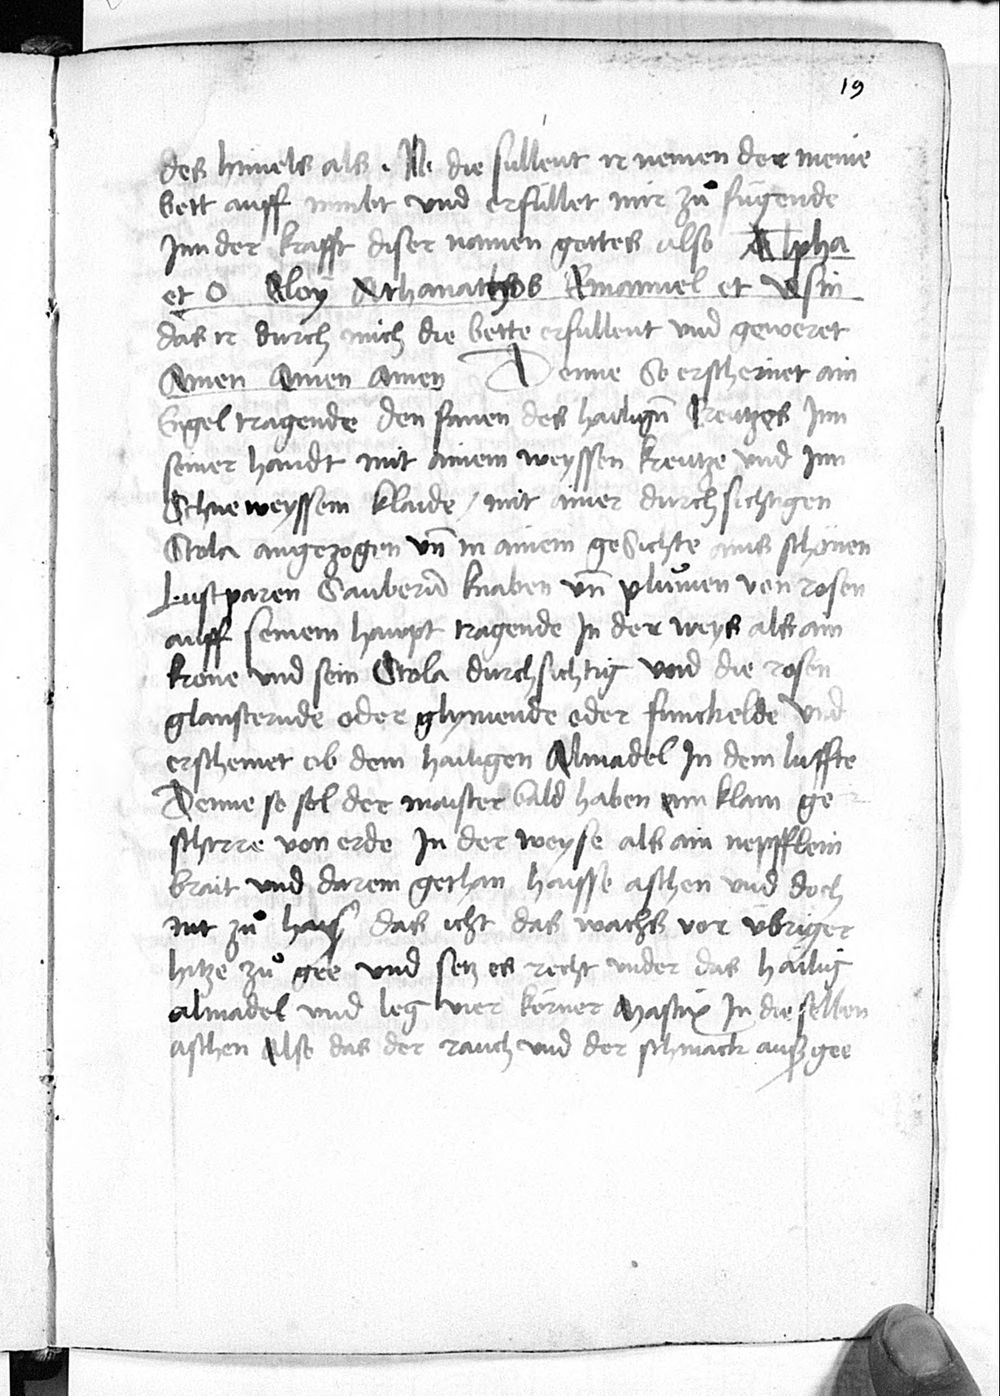 19
des himels als . N. die süllent ir nemen der meine
bett auff nimbt vnd erfüllet mir zů fügende
Inn der krafft diser namen gottes also Alpha
et O Eloÿ Athanathos Emanuel et Vsin
das ir durch mich die bette erfüllent vnd geweret
Amen Amen Amen Denne So erscheinet ain
Engel tragende den fanen des hailign̄ Creutzes Inn
seiner handt mit ainem weyssen kreutze vnd Inn
Schneweyssem klaide / mit ainer durchsichtigen
Stola angezogen vn̄ in ainem gesichte ains schönen
Lustparen Saubern̄ knaben vn̄ plůmen von rosen
auff seinem haupt tragende In der weys als ain
krone vnd sein Stola durchsichtig vnd die rosen
glansternde oder glymende oder funckelde vnd
erscheinet ob dem hailigen Almadel In dem luffte
Denne so sol der maister bald haben ain klain ge
schirre von erde In der weyse als ain nepfflein
brait vnd darein gethan haisse aschen vnd doch
nit zů hais das icht das wachs vor übriger
hitze zů gee vnd setz es recht vnder das hailig
almadel vnd leg vier körner Mastix In die selben
aschen Also das der rauch vnd der schmack auß gee